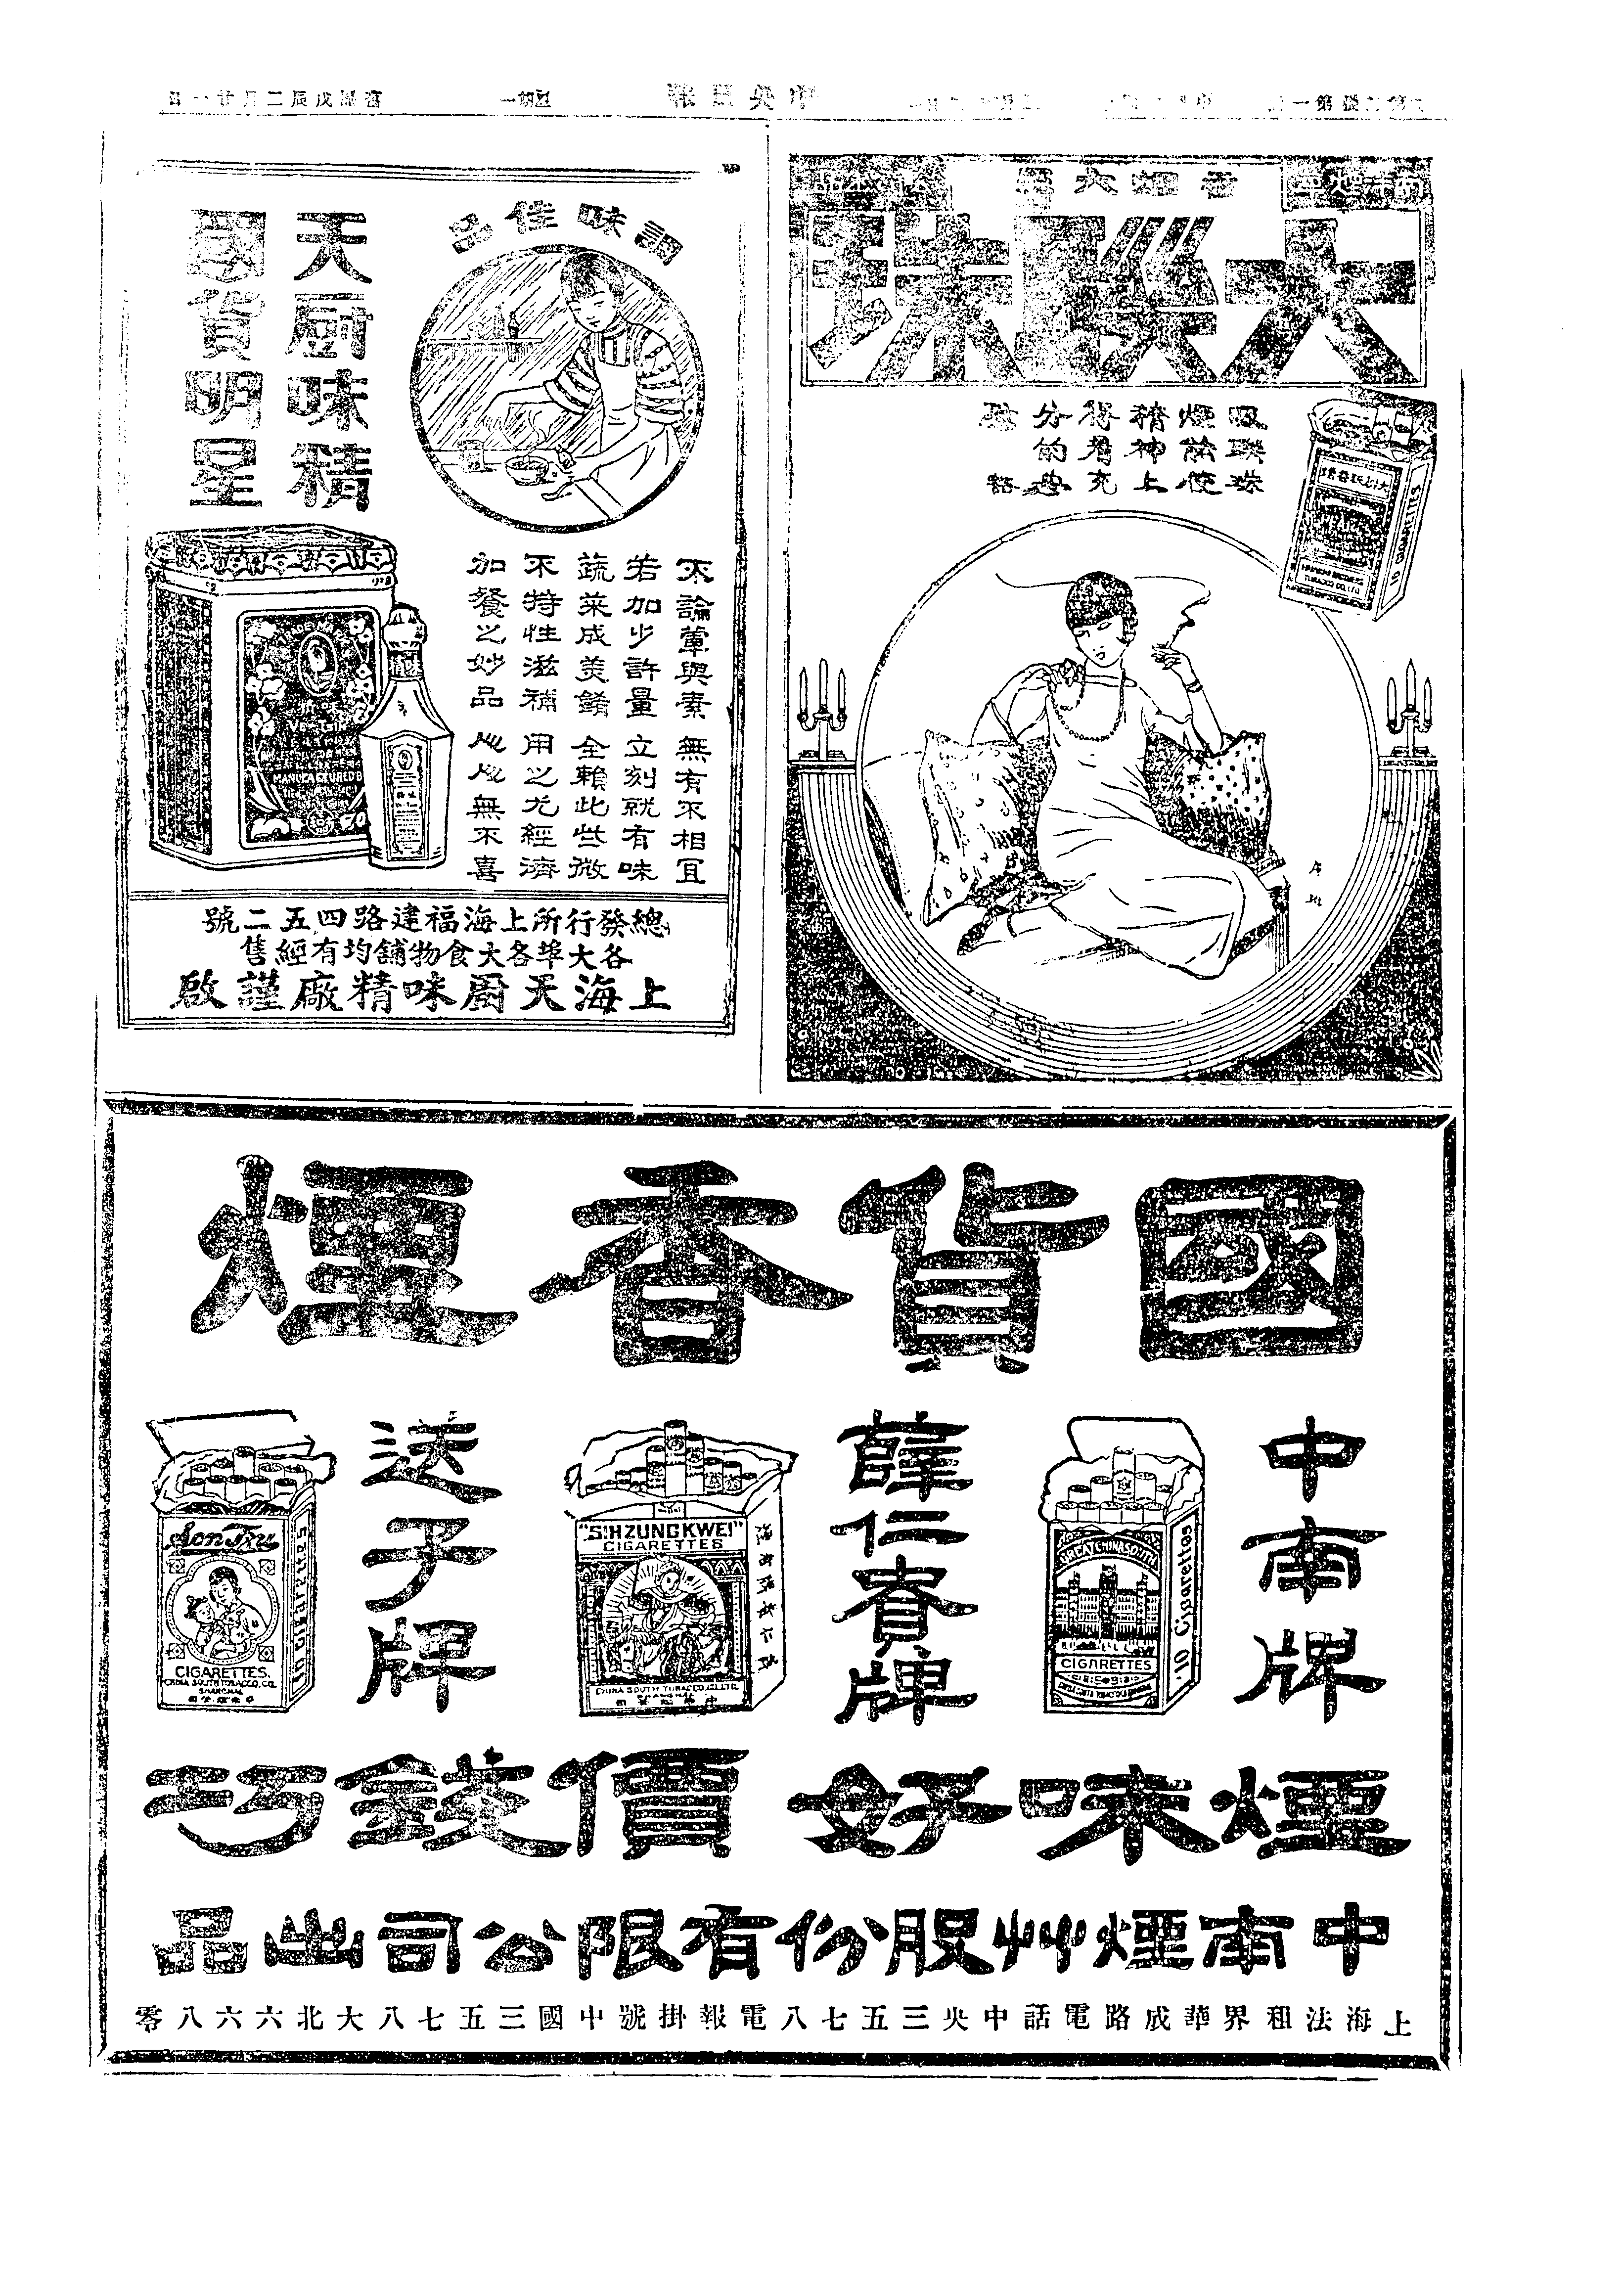 中央日報
星期一
舊曆戊辰二月廿一日
大聯珠
吸聯珠
煙能使
精神上
得着充
分的愉
調味佳品
天厨味精
國貨明星
不論葷與素 無有不相宜
若加少許量 立刻就有味
蔬菜成美餚 全賴此些微
不特性滋補 用之尤經濟
加餐之妙品 人人無不喜
MANUFACTURED B
總發行所上海福建路四五二號
各大埠各大食物舖均有經售
上海天厨味精廠謹啟
10 CIGARETTES
TOBACCO CO. LTD.
國貨香煙
中南牌
GREAT CHINA SOUTH
CIGARETTES
10 Cigarettes
薛仁貴牌
"SIHZUNGKWEI"
CIGARETTES
CHINA SOUTH TOBACCO CO. LTD.
SHANGHAI
送子牌
Son Tsu
CIGARETTES.
CHINA SOUTH TOBACCO, CO.
SHANGHAI
10 Cigarettes
煙味好 價錢巧
中南煙艸股份有限公司出品
上海法租界華成路電話中央三五七八電報掛號中國三五七八大北六六八零